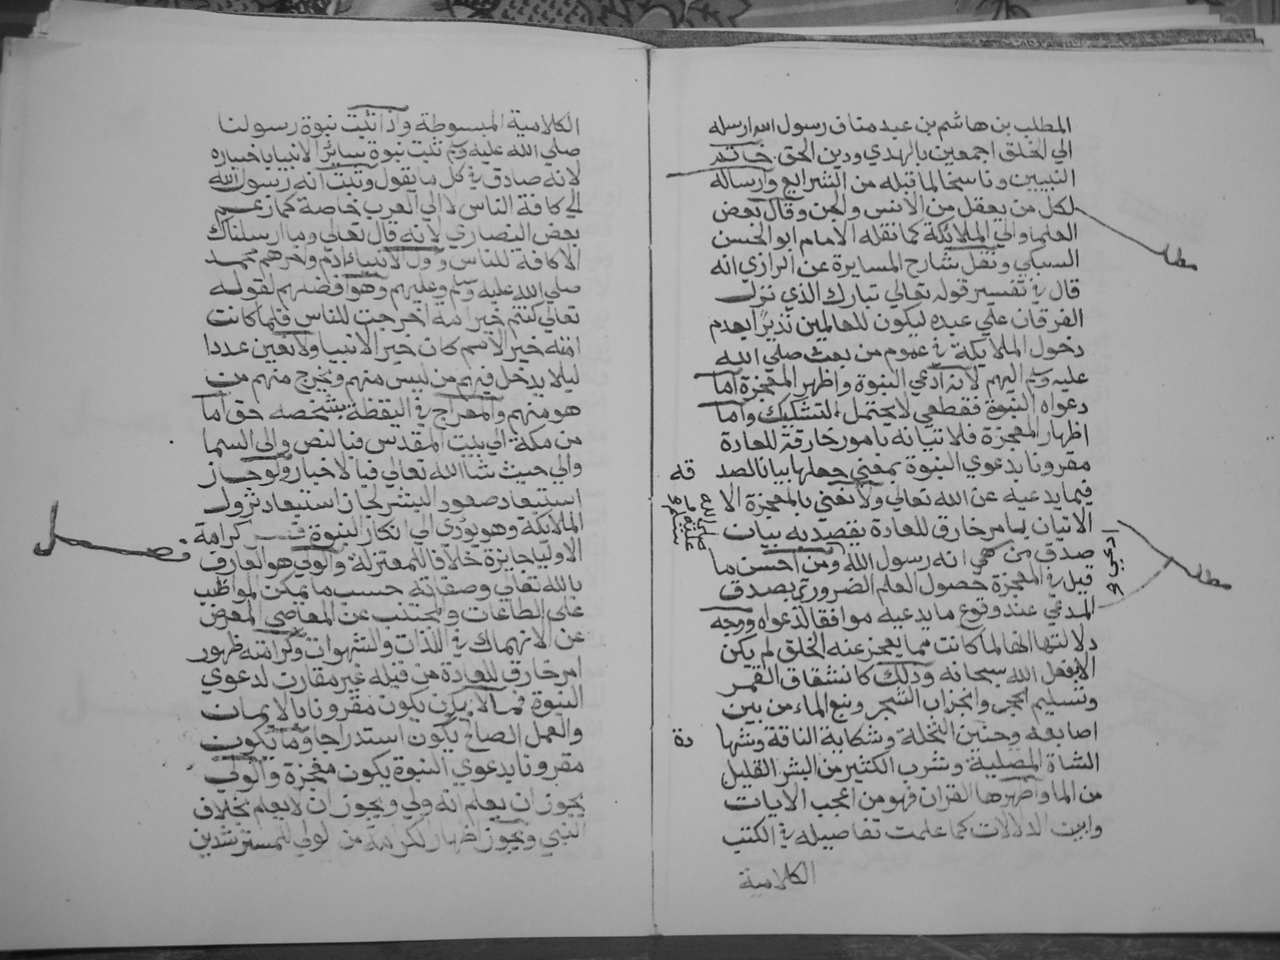 المطلب بن هاشم بن عبد مناف رسول الله ارسله
الي الخلق اجمعين بالهدي ودين الحق خاتم
النبيين وناسخا لما قبله من الشرايع وارساله
لكل من يعقل من الانس والجن وقال بعض
العلما والي الملائكة كما نقله الامام ابو الحسن
السبكي ونقل شارح المسايرة عن الرازي انه
قال في تفسير قوله تعالي تبارك الذي نزل
الفرقان علي عبده ليكون للعالمين نذيرا بعدم
دخول الملايكة في عموم من بعث صلي الله
عليه وسلم اليهم لانه ادعي النبوة واظهر المعجزة اما
دعواه النبوة فقطعي لا يحتمل التشكيك واما
اظهار المعجزة فلاتيانه بامور خارقة للعادة
مقرونا بدعوي النبوة بمعني جعلها بيانا لصد
قه
فيما يدعيه عن الله تعالي ولا نعني بالمعجزة الا
الاتيان بامر خارق للعادة يقصد به بيان
صدق من ادعي انه رسول الله ومن احسن ما
قيل في المعجزة حصول العلم الضروري بصدق
المدعي عند وقوع ما يدعيه موافقا لدعواه ووجه
دلالتها انها لما كانت مما يعجز عنه الخلق لم يكن
الا بفعل الله سبحانه وذلك كانشقاق القمر
وتسليم الحجر وانجذاب الشجر ونبع الماء من بين
اصابعه وحنين النخلة وشكاية الناقة وشها
دة
الشاة المصلية وشرب الكثير من البشر القليل
من الما واظهرها القران فهو من اعجب الايات
وابين الدلالات كما علمت تفاصيله في الكتب
الكلامية
مطلب
مطلب
الكلامية المبسوطة واذا ثبت نبوة رسولنا
صلي الله عليه وسلم ثبت نبوة ساير الانبيا باخباره
لانه صادق في كل ما يقول وثبت انه رسول الله
الي كافة الناس لا الي العرب خاصة كما زعم
بعض النصاري لانه قال تعالي وما ارسلناك
الا كافة للناس واول الانبياء ادم واخرهم محمد
صلي الله عليه وسلم وعليهم وهو افضلهم لقوله
تعالي كنتم خير امة اخرجت للناس فلما كانت
امته خير الامم كان خير الانبيا ولا نعين عددا
ليلا يدخل فيهم من ليس منهم ويخرج منهم من
هو منهم والمعراج في اليقظة بشخصه حق اما
من مكة الي بيت المقدس فبالنص والي السما
والي حيث شاالله تعالي فبالاخبار ولو جاز
استبعاد صعود البشر لجاز استبعاد نزول
الملائكة وهو يؤدي الي انكار النبوة كرامة
الاوليا جايزة خلافا للمعتزلة والولي هو العارف
بالله تعالي وصفاته حسب ما يمكن المواظب
على الطاعات والمجتنب عن المعاصي المعرض
عن الانهماك في اللذات والشهوات وكرامته ظهور
امر خارق للعادة من قبله غير مقارن لدعوي
النبوة فما لا يكون مقرونا بالايمان
والعمل الصالح يكون استدراجا وما يكون
مقرونا بدعوي النبوة يكون معجزة والولي
يجوز ان يعلم انه ولي ويجوز ان لا يعلم بخلاف
النبي ويجوز اظهار الكرامة من الولي للمسترشدين
فصل